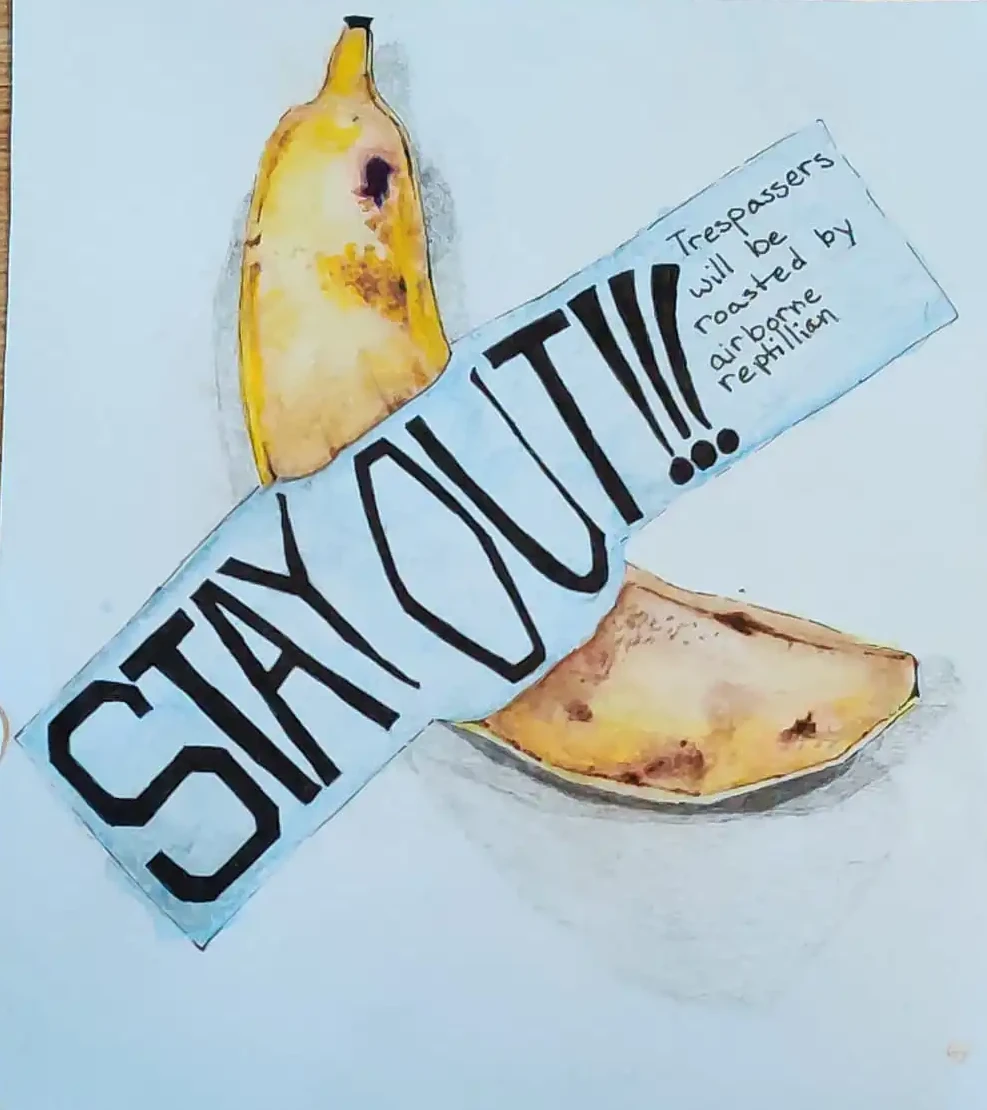 STAY OUT!!!
Trespassers
will be
roasted by
airborne
reptillian